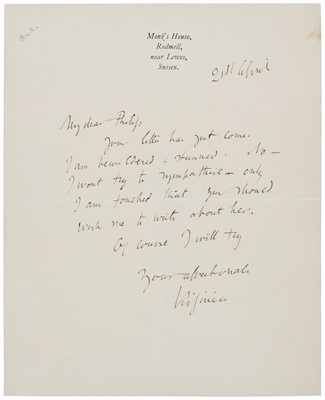 Monk's House,
Rodmell,
near Lewes,
Sussex.
21st April
My dear Philip
Your letter has just come.
I am bewildered & stunned. No —
I wont try to sympathise — only
I am touched that you should
wish me to write about her.
Of course I will try
Your affectionate
Virginia